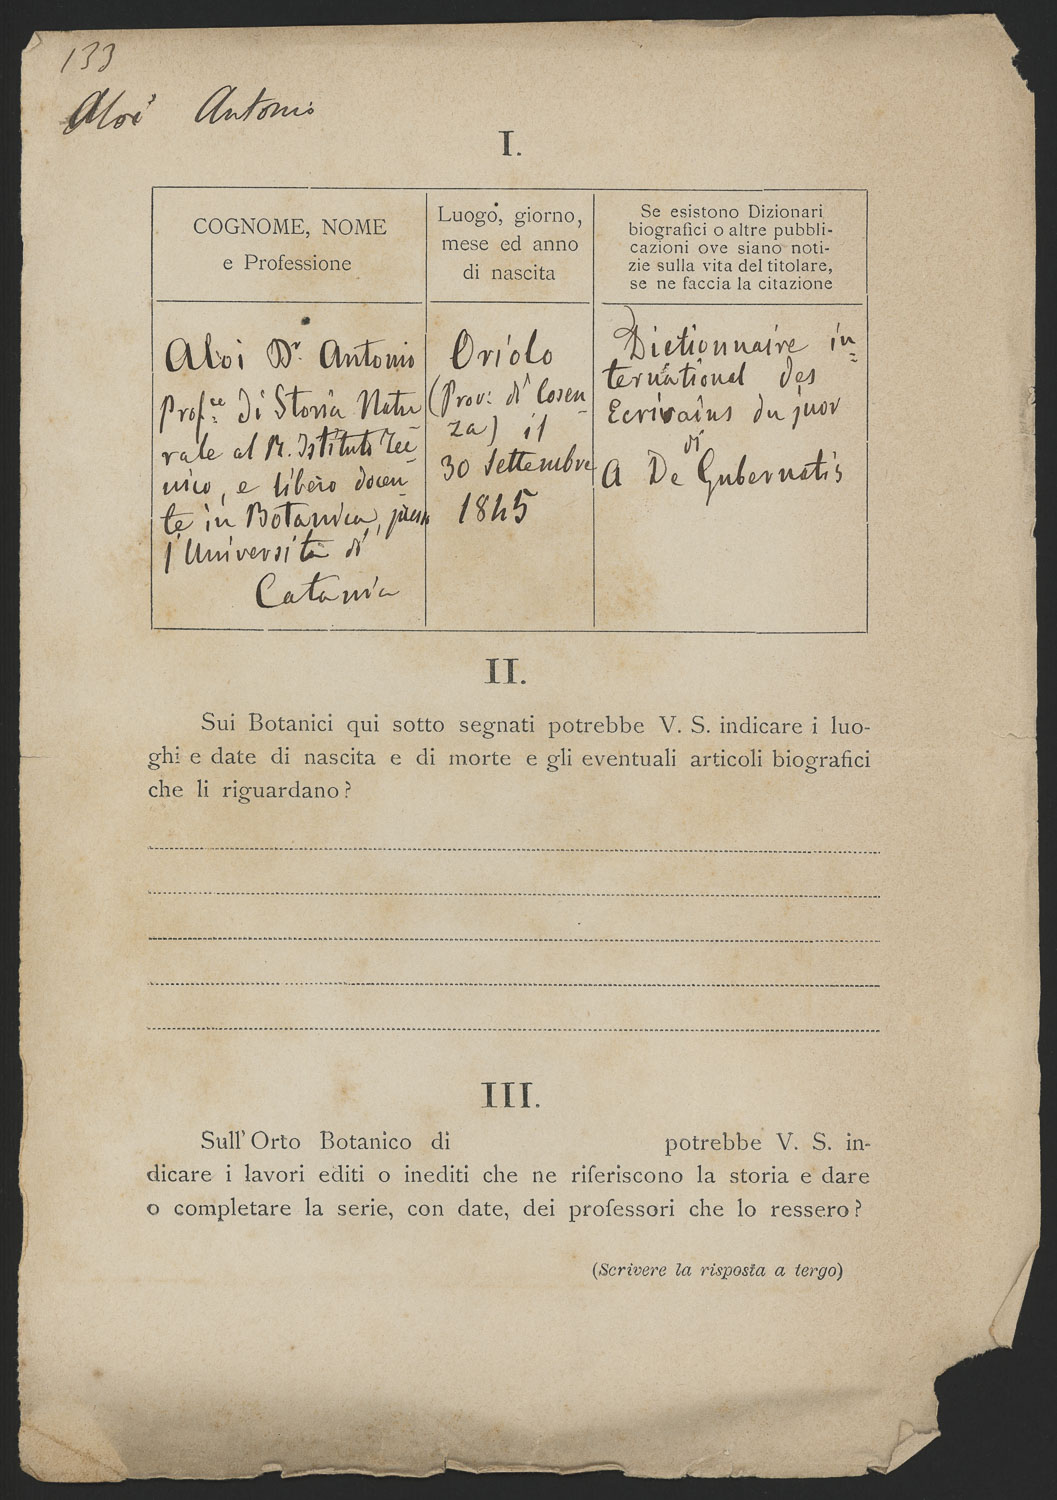 133
Aloi Antonio
I.
COGNOME, NOME
e Professione
Luogo, giorno,
mese ed anno
di nascita
Se esistono Dizionari
biografici o altre pubbli-
cazioni ove siano noti-
zie sulla vita del titolare,
se ne faccia la citazione
Aloi Dr. Antonio
Prof.re di Storia Natu
rale al R. Istituto Tec-
nico, e libero docen-
te in Botanica, presso
l'Università di
Catania
Oriolo
(Prov: di Cosen-
za) il
30 Settembre
1845
Dictionnaire in-
ternational des
Ecrivains du jour
di
A De Gubernatis
II.
Sui Botanici qui sotto segnati potrebbe V. S. indicare i luo-
ghi e date di nascita e di morte e gli eventuali articoli biografici
che li riguardano?
III.
Sull'Orto Botanico di potrebbe V. S. in-
dicare i lavori editi o inediti che ne riferiscono la storia e dare
o completare la serie, con date, dei professori che lo ressero?
(Scrivere la risposta a tergo)